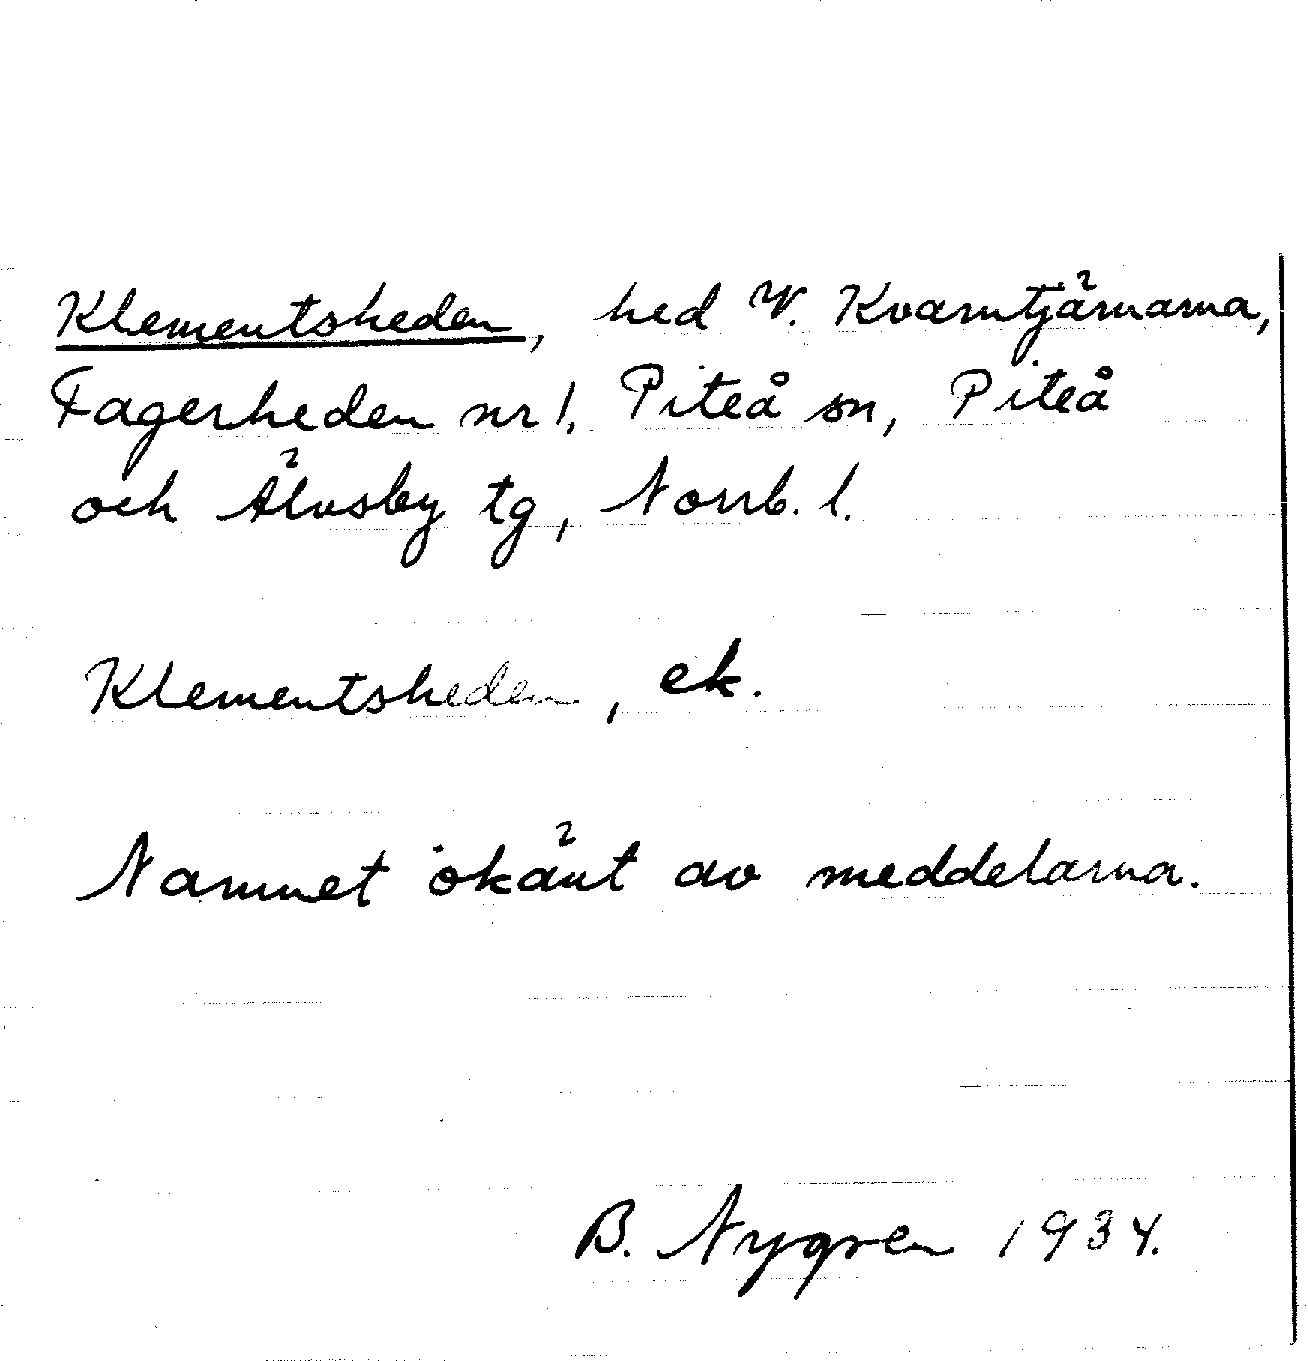 Klementsheden, hed V. Kvarntjärnarna,
Fagerheden nr 1, Piteå sn, Piteå
och Älvsby tg, Norrb. l.
Klementsheden, ek.
Namnet okänt av meddelarna.
B. Nygren 1934.